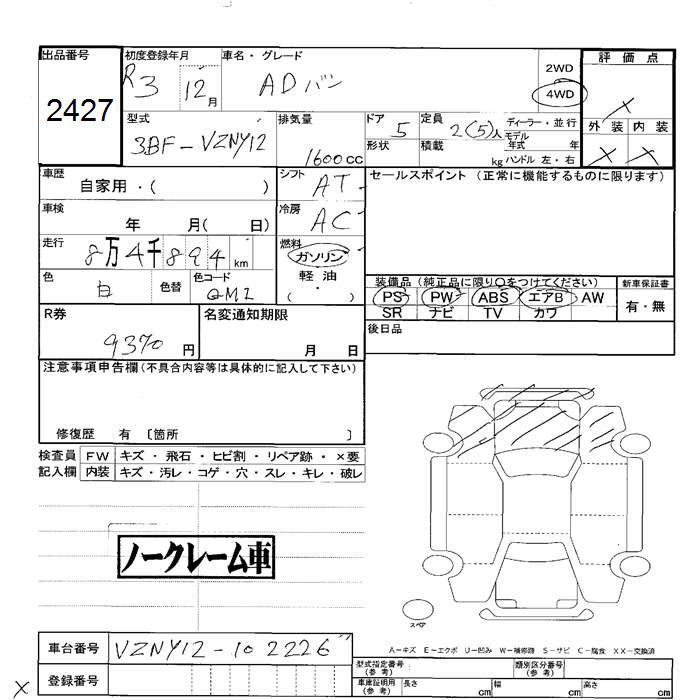 出品番号
2427
初度登録年月
R3 12月
車名・グレード
ADバン
2WD
4WD
評価点
×
外装 内装
× ×
型式
3BF-VZNY12
排気量
1600cc
ドア
5
形状
定員
2(5)人
積載
kg
ディーラー・並行
モデル
年式 年
ハンドル 左・右
車歴
自家用・( )
シフト
AT
セールスポイント (正常に機能するものに限ります)
車検
年 月( 日)
冷房
AC
走行
8万4千894km
燃料
ガソリン
軽油
( ・ )
色
白
色替
色コード
QM1
装備品 (純正品に限り○をつけてください)
PS PW ABS エアB AW
SR ナビ TV カワ
新車保証書
有・無
R券
9370円
名変通知期限
月 日
後日品
注意事項申告欄(不具合内容等は具体的に記入して下さい)
修復歴 有 〔箇所 〕
検査員 FW キズ・飛石・ヒビ割・リペア跡・×要
記入欄 内装 キズ・汚レ・コゲ・穴・スレ・キレ・破レ
ノークレーム車
スペア
A-キズ E-エクボ U-凹み W-補修跡 S-サビ C-腐食 XX-交換済
車台番号
VZNY12-102226
型式指定番号
(参考)
類別区分番号
(参考)
× 登録番号
車庫証明用
(参考)
長さ cm
幅 cm
高さ cm